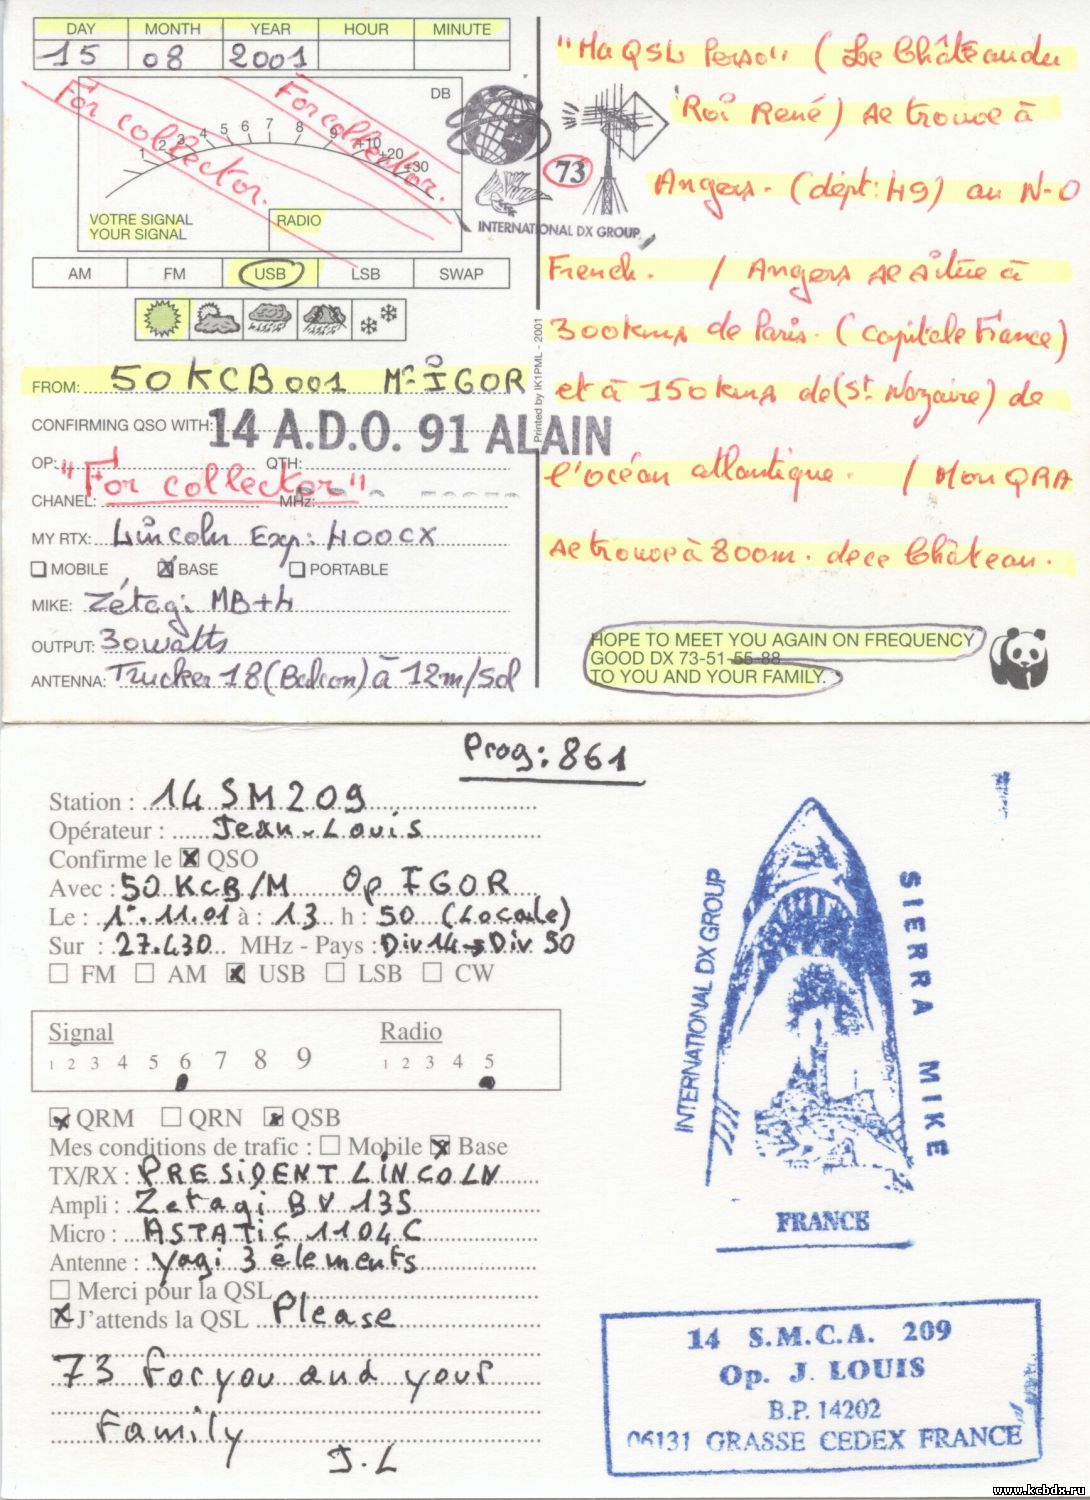 DAY MONTH YEAR HOUR MINUTE
15 08 2001
For collector. For collector.
DB
1 2 3 4 5 6 7 8 9 +10 +20 +30
VOTRE SIGNAL
YOUR SIGNAL
RADIO
AM FM USB LSB SWAP
FROM: 50 KCB 001 Mr IGOR
CONFIRMING QSO WITH:
14 A.D.O. 91 ALAIN
OP: QTH:
"For collector"
CHANEL: MHz:
MY RTX: Lincoln Exp: 400CX
MOBILE BASE PORTABLE
MIKE: Zétagi MB+4
OUTPUT: 30watts
ANTENNA: Trucker 18 (Balcon) à 12m/Sol
Printed by IK1PML - 2001
73
INTERNATIONAL DX GROUP
"Ma QSL Perso" (Le Château du
Roi René) se trouve à
Angers. (dépt: 49) au N-O
French. / Angers se situe à
300kms de Paris. (capitale France)
et à 150kms de (St Nazaire) de
l'océan atlantique. / Mon QRA
se trouve à 800m. de ce Château.
HOPE TO MEET YOU AGAIN ON FREQUENCY
GOOD DX 73-51-55-88
TO YOU AND YOUR FAMILY.
Prog: 861
Station : 14 SM 209
Opérateur : Jean-Louis
Confirme le QSO
Avec : 50 KCB/M Op IGOR
Le : 1°.11.01 à : 13 h : 50 (Locale)
Sur : 27.430 MHz - Pays : Div 14→Div 50
FM AM USB LSB CW
Signal Radio
1 2 3 4 5 6 7 8 9 1 2 3 4 5
QRM QRN QSB
Mes conditions de trafic : Mobile Base
TX/RX : PRESIDENT LINCOLN
Ampli : Zetagi BV 135
Micro : ASTATIC 1104C
Antenne : Yagi 3 élements
Merci pour la QSL
J'attends la QSL Please
73 For you and your
Family
J.L
INTERNATIONAL DX GROUP
SIERRA MIKE
FRANCE
14 S.M.C.A. 209
Op. J. LOUIS
B.P. 14202
06131 GRASSE CEDEX FRANCE
www.kcbdx.ru